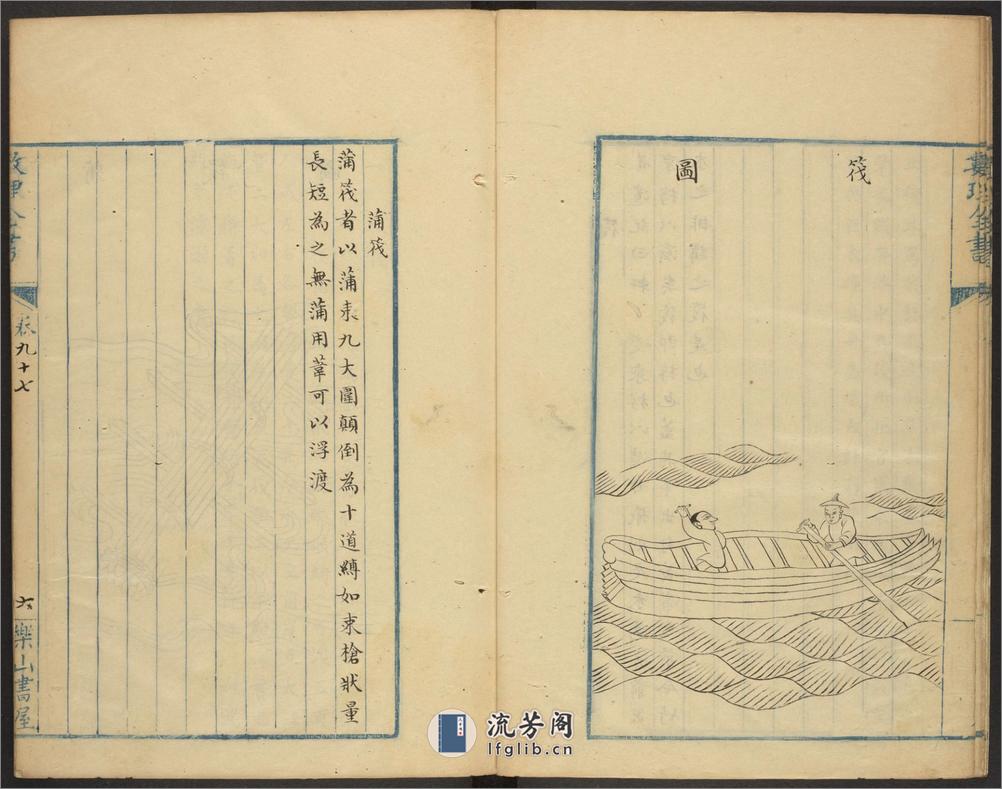 數理全書
筏
圖
蒲筏
蒲筏者以蒲束九大圍顛倒為十道縛如束槍狀量
長短為之無蒲用葦可以浮渡
數理全書
卷九十七
六
樂山書屋
流芳阁
lfglib.cn